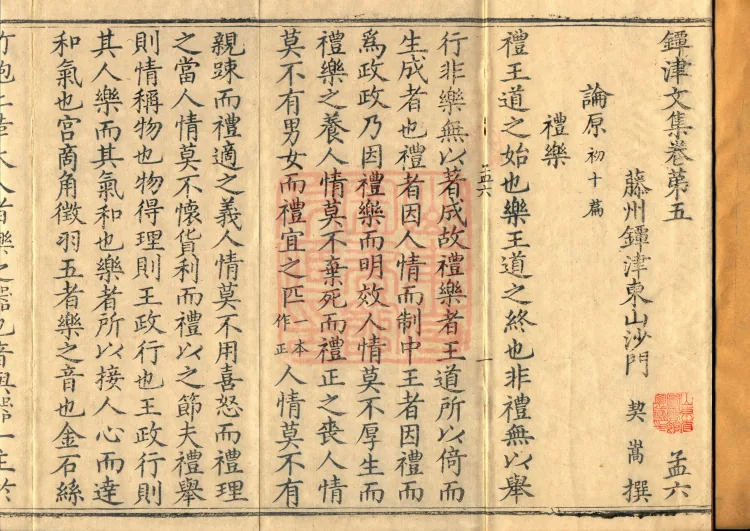 鐔津文集卷第五 孟六
藤州鐔津東山沙門 契嵩 撰
論原 初十篇
禮樂
禮王道之始也樂王道之終也非禮無以舉
孟六 一
行非樂無以著成故禮樂者王道所以倚而
生成者也禮者因人情而制中王者因禮而
爲政政乃因禮樂而明效人情莫不厚生而
禮樂之養人情莫不棄死而禮正之喪人情
莫不有男女而禮宜之匹一本作正人情莫不有
親踈而禮適之義人情莫不用喜怒而禮理
之當人情莫不懷貨利而禮以之節夫禮舉
則情稱物也物得理則王政行也王政行則
其人樂而其氣和也樂者所以接人心而達
和氣也宮商角徵羽五者樂之音也金石絲
竹匏土革木八者樂之器也音與器一主於